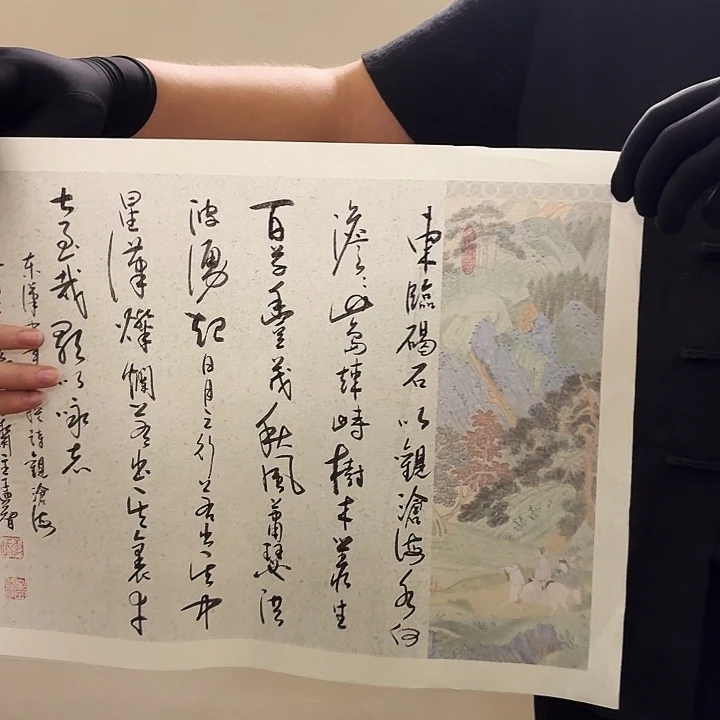 東臨碣石以觀滄海水何
澹澹山島竦峙樹木叢生
百草豐茂秋風蕭瑟洪
波湧起日月之行若出其中
星漢燦爛若出其裏幸
甚至哉歌以詠志
東漢詩觀滄海